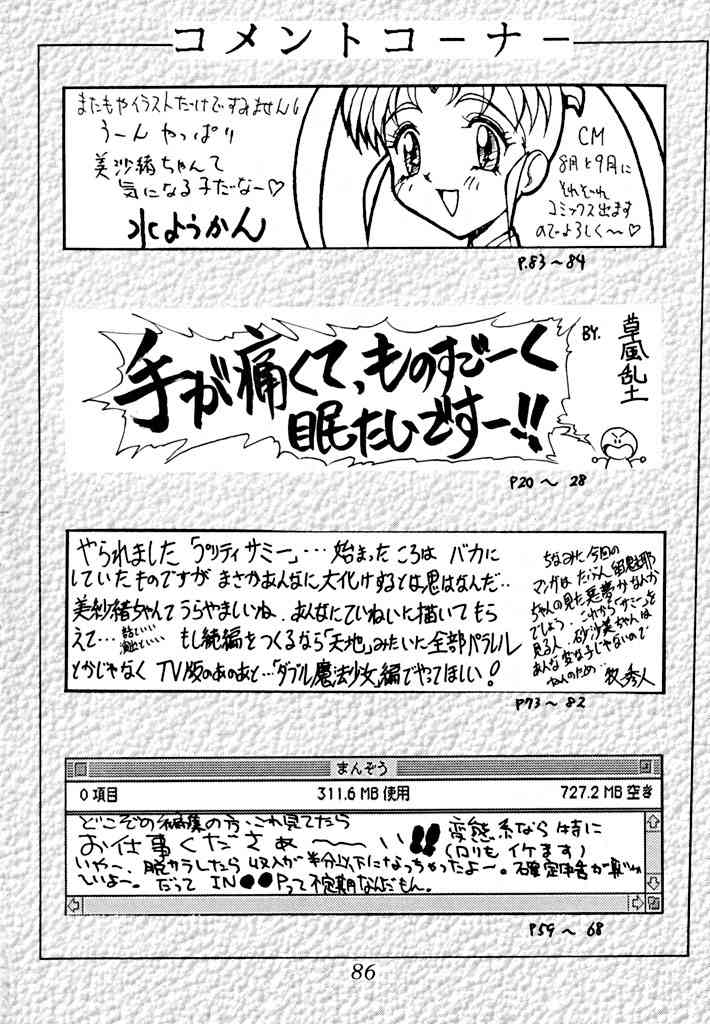 コメントコーナー
またもやイラストだけですみません
うーん やっぱり
美沙緒ちゃんて
気になる子だなー♡
水ようかん
CM
8月と9月に
それぞれ
コミックス出ます
のでよろしく〜♡
P.83〜84
手が痛くて、ものすごーく
眠たいですー!!
BY.
草風乱土
P20〜28
やられました「プリティサミー」…始まったころは バカに
していたものですが まさかあんなに大化けするとは思はなんだ…
美紗緒ちゃんてうらやましいね、あんなにていねいに描いてもら
えて… もし続編をつくるなら「天地」みたいた全部パラレル
とかじゃなく TV版のあのあと…「ダブル魔法少女」編でやってほしい!
ちなみに今回の
マンガは たぶん 留魅耶
ちゃんの見た悪夢かなんか
でしょう。これから「サミー」を
見る人、砂沙美ちゃんは
あんな変な子じゃないので
そんのため…
牧秀人
P73〜82
まんぞう
0 項目
311.6 MB 使用
727.2 MB 空き
どこぞの編集の方、これ見てたら
お仕事くださぁ〜〜い!!
変態系なら特に
(ロリもイケます)
いやー、脱サラしたら収入が半分以下になっちゃったよー。確定申告が
いよー。だって IN●●Pって不定期なんだもん。
P59〜68
86